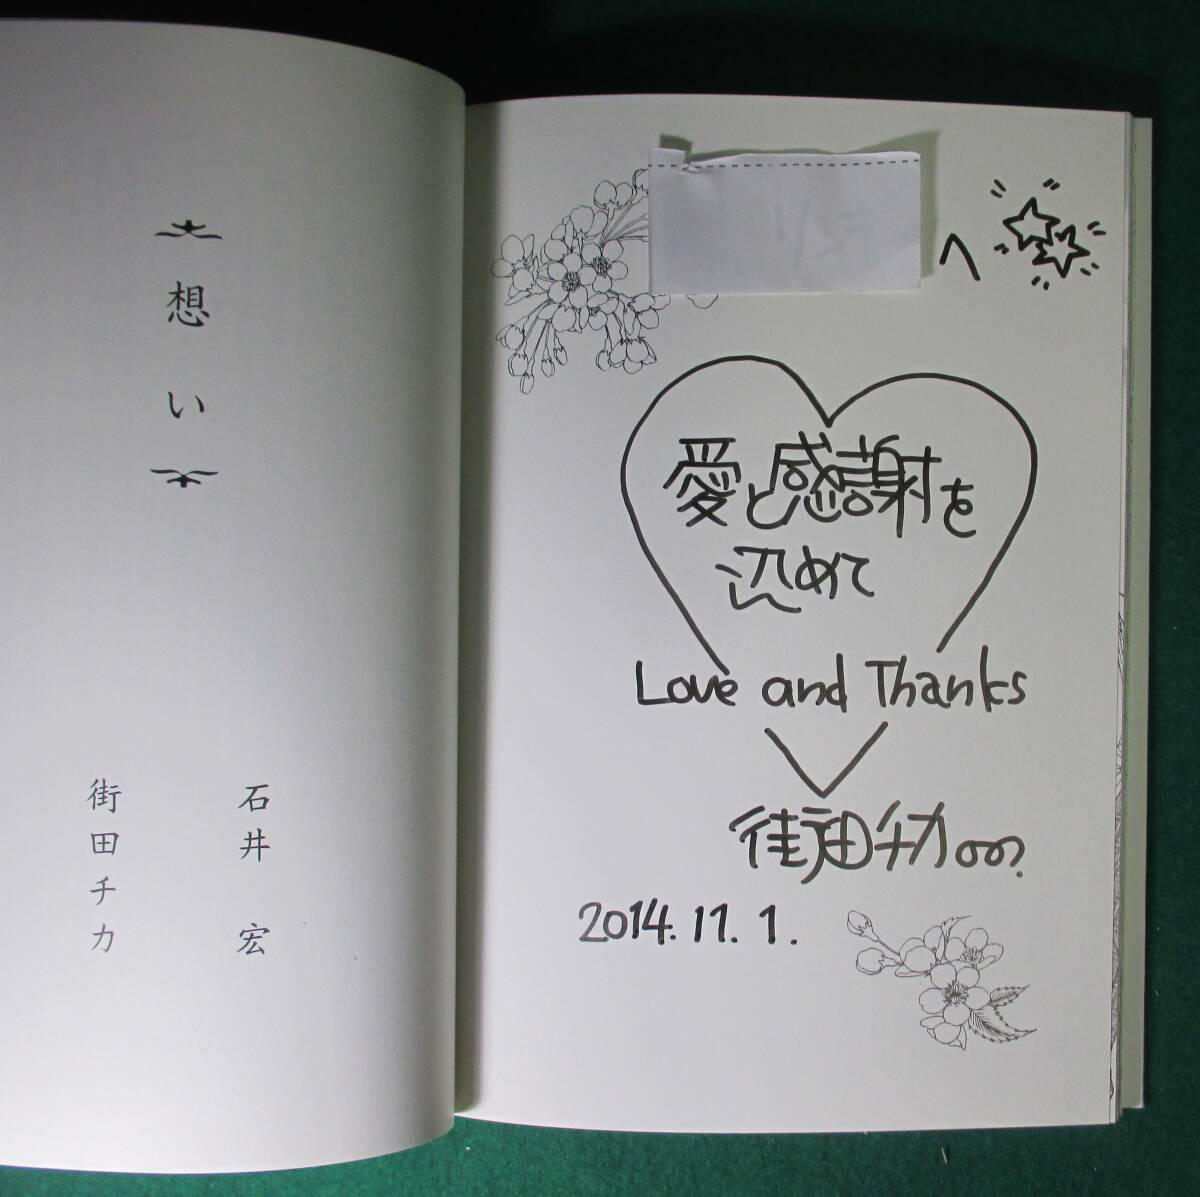 想い
石井 宏
街田チカ
へ
愛と感謝を
込めて
Love and Thanks
街田チカ
2014.11.1.